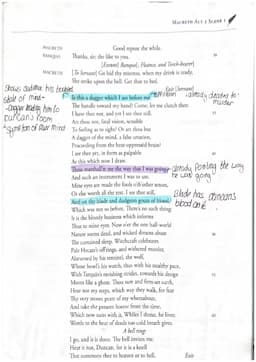 MACBETH ACT 2 SCENE 1
MACBETH Good repose the while.
BANQUO Thanks, sir; the like to you.
[Exeunt] Banquo[, Fleance, and Torch-bearer]
MACBETH [To Servant] Go bid thy mistress, when my drink is ready,
She strike upon the bell. Get thee to bed.
Exit [Servant]
Is this a dagger which I see before me,
The handle toward my hand? Come, let me clutch thee:
I have thee not, and yet I see thee still.
Art thou not, fatal vision, sensible
To feeling as to sight? Or art thou but
A dagger of the mind, a false creation,
Proceeding from the heat-oppressèd brain?
I see thee yet, in form as palpable
As this which now I draw.
Thou marshall'st me the way that I was going,
And such an instrument I was to use.
Mine eyes are made the fools o'th'other senses,
Or else worth all the rest. I see thee still,
And on thy blade and dudgeon gouts of blood,
Which was not so before. There's no such thing:
It is the bloody business which informs
Thus to mine eyes. Now o'er the one half-world
Nature seems dead, and wicked dreams abuse
The curtained sleep. Witchcraft celebrates
Pale Hecate's off'rings, and withered murder,
Alarumed by his sentinel, the wolf,
Whose howl's his watch, thus with his stealthy pace,
With Tarquin's ravishing strides, towards his design
Moves like a ghost. Thou sure and firm-set earth,
Hear not my steps, which way they walk, for fear
Thy very stones prate of my whereabout,
And take the present horror from the time,
Which now suits with it. Whiles I threat, he lives;
Words to the heat of deeds too cold breath gives.
A bell rings
I go, and it is done. The bell invites me.
Hear it not, Duncan, for it is a knell
That summons thee to heaven or to hell. Exit
Shows audience his
state of mind -
-dagger leading him to
Duncan's room
-symptom of their mind
already
murder
already the way
he was going
Blade has
blood on it